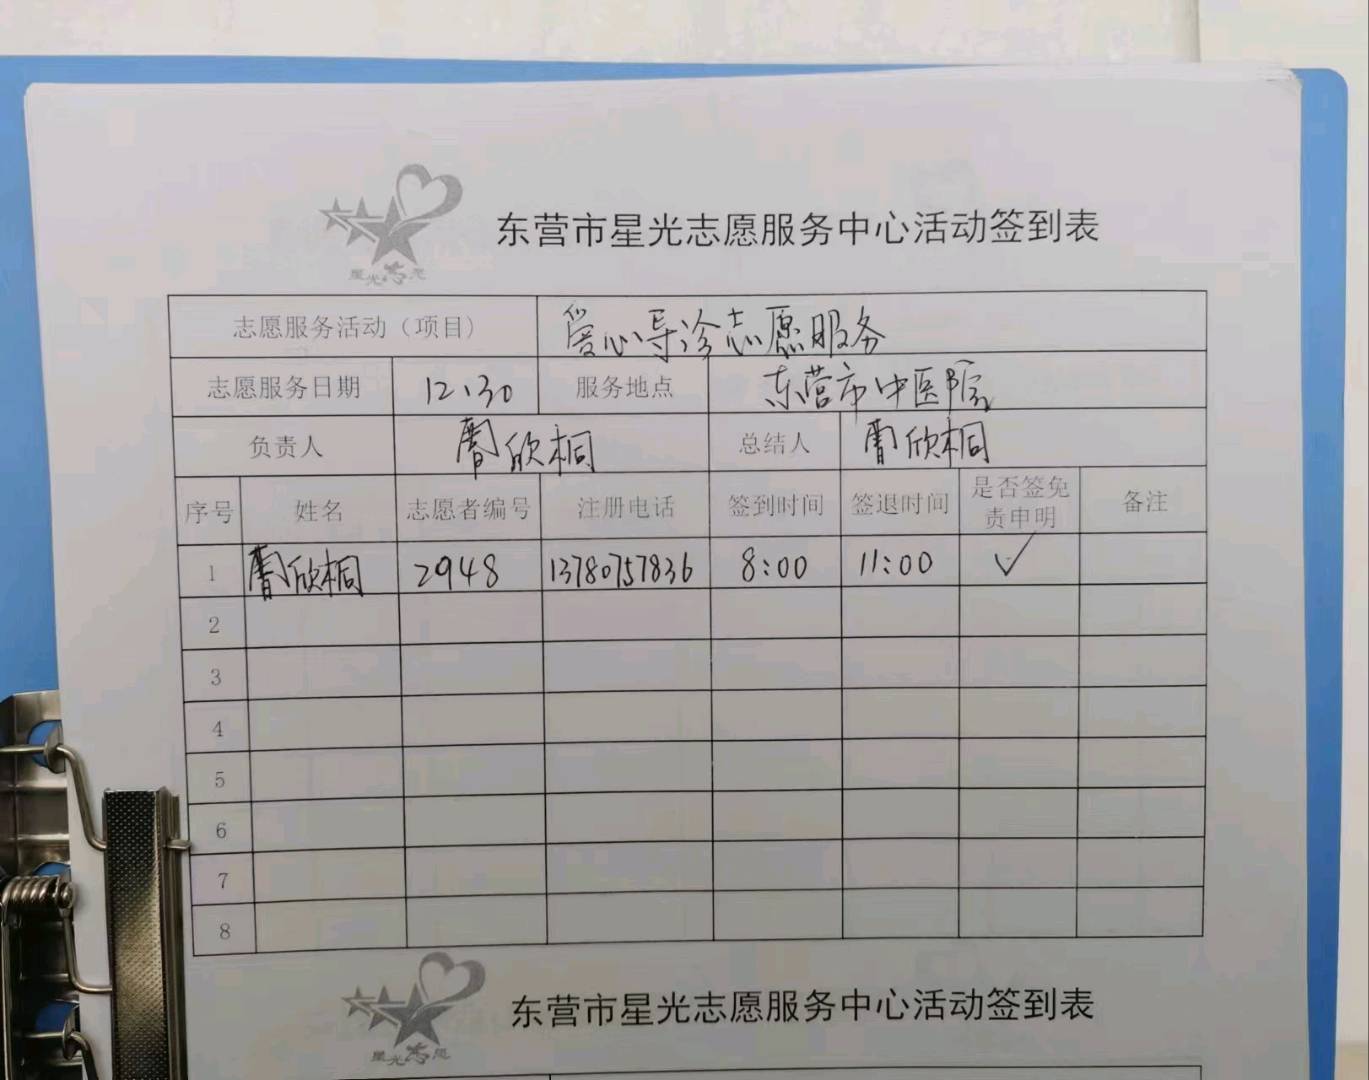 星光志愿
东营市星光志愿服务中心活动签到表
志愿服务活动（项目） 爱心导诊志愿服务
志愿服务日期 12.30 服务地点 东营市中医院
负责人 欣桐 总结人 欣桐
序号 姓名 志愿者编号 注册电话 签到时间 签退时间 是否签免责申明 备注
1 欣桐 2948 13780757836 8:00 11:00 ✓
2
3
4
5
6
7
8
星光志愿
东营市星光志愿服务中心活动签到表